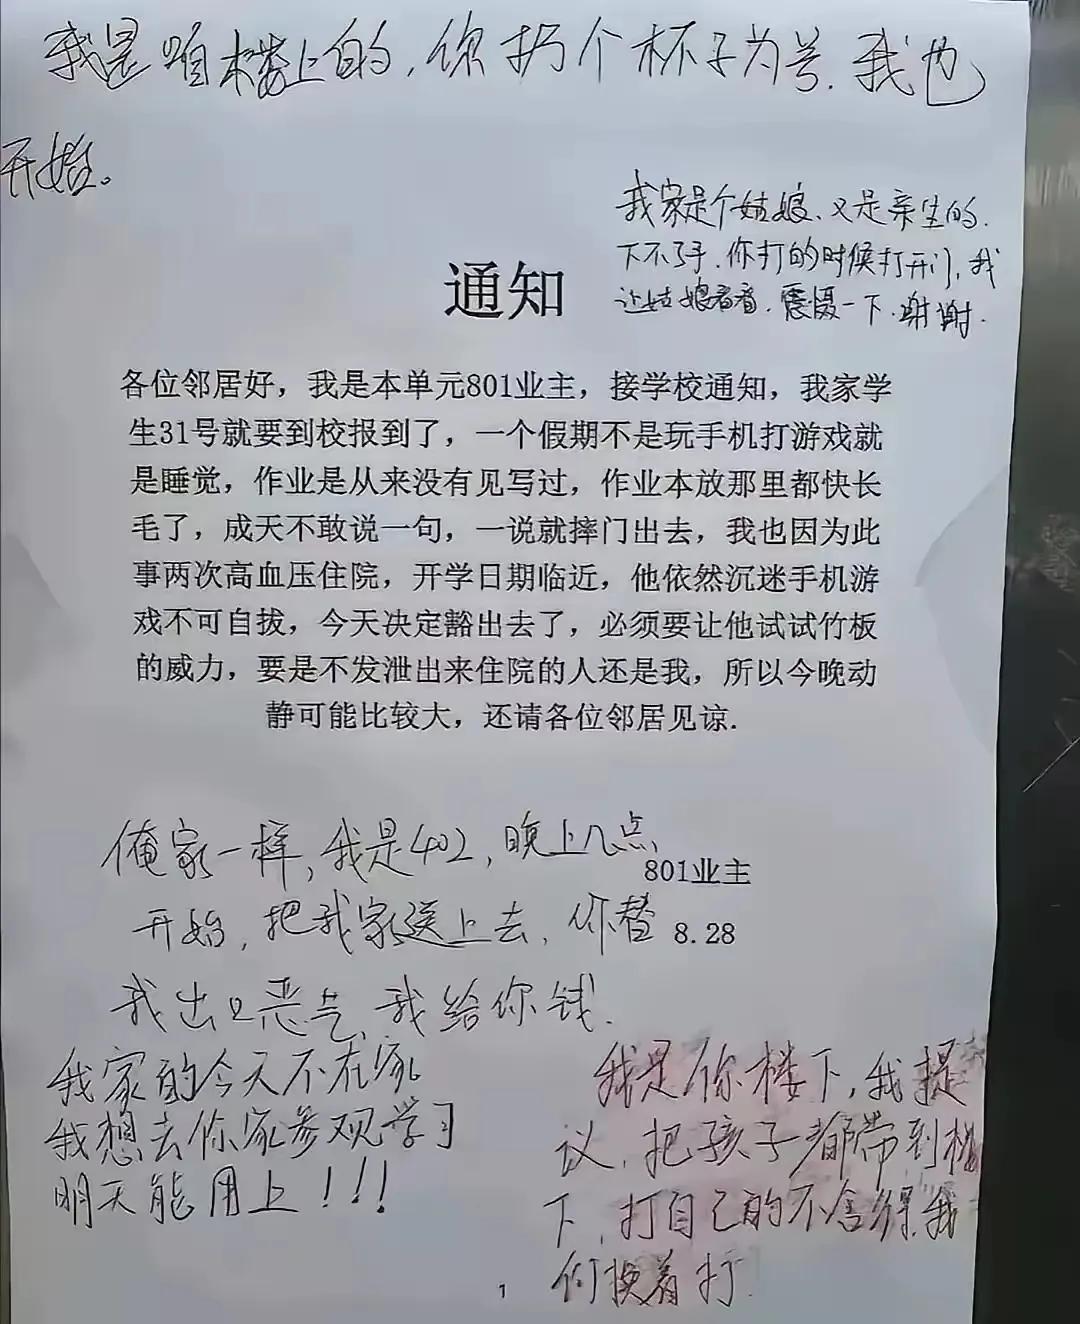 我是咱楼上的,你扔个杯子为号.我也
开始。
我家是个姑娘、又是亲生的.
下不了手.你打的时候打开门,我
让姑娘看看.震慑一下.谢谢.
通知
各位邻居好，我是本单元801业主，接学校通知，我家学
生31号就要到校报到了，一个假期不是玩手机打游戏就
是睡觉，作业是从来没有见写过，作业本放那里都快长
毛了，成天不敢说一句，一说就摔门出去，我也因为此
事两次高血压住院，开学日期临近，他依然沉迷手机游
戏不可自拔，今天决定豁出去了，必须要让他试试竹板
的威力，要是不发泄出来住院的人还是我，所以今晚动
静可能比较大，还请各位邻居见谅.
俺家一样,我是402,晚上几点
开始,把我家送上去,你替
我出口恶气,我给你钱.
801业主
8.28
我家的今天不在家
我想去你家参观学习
明天能用上!!!
我是你楼下,我提
议,把孩子都带到楼
下,打自己的不舍得.我
们换着打.
1